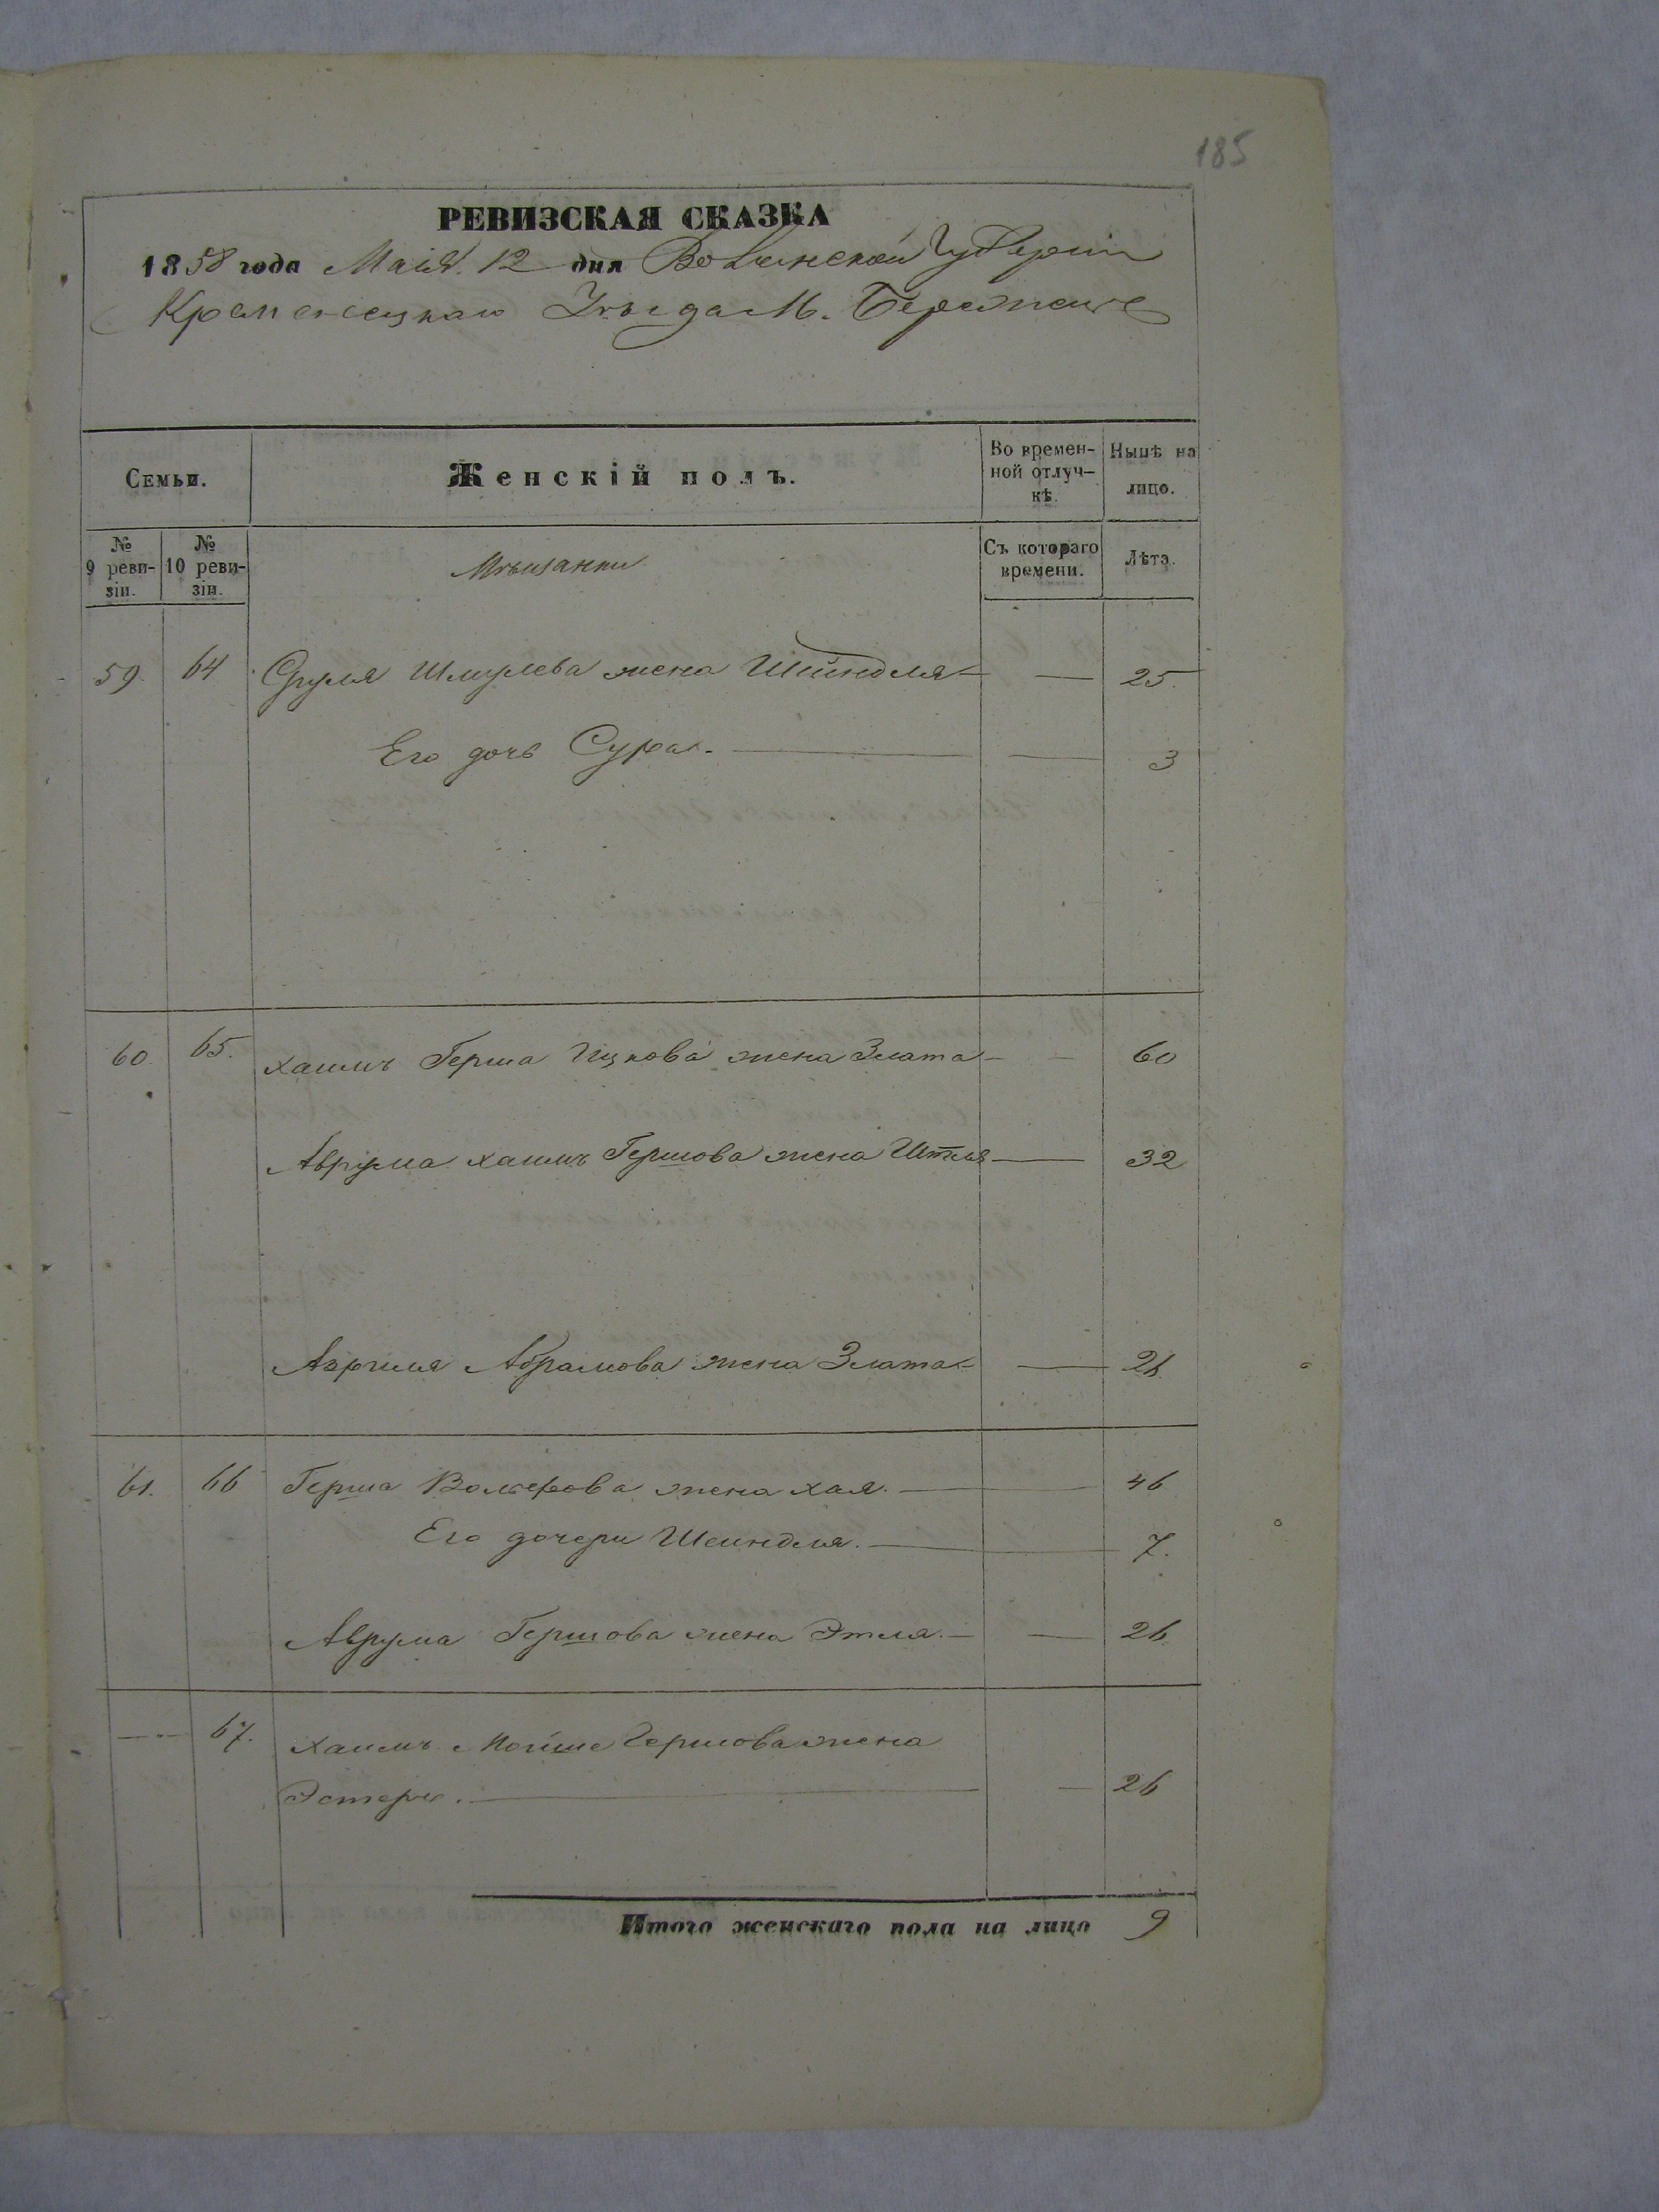 185
РЕВИЗСКАЯ СКАЗКА
1858 года Маія 12 дня Волынской Губерніи
Кременецкаго Уѣзда М. Бережец
Семьи.
Женскій полъ.
Во времен-
ной отлуч-
кѣ.
Нынѣ на
лицо.
№
9 реви-
зіи.
№
10 реви-
зіи.
Мѣщанки
Съ котораго
времени.
Лѣта.
59. 64 Сруля Шмулева жена Шейндля — — 25.
Его дочь Сура. — — 3
60. 65. Хаимъ Герша Ицкова жена Злата — — 60
Аврума Хаимъ Гершова жена Итля — 32
Абрамова жена Злата — — 26
61. 66 Герша Волькова жена Хая. — 46
Его дочери Шеиндля. — 7.
Аврума Гершова жена Этля. — — 26.
— 67. Хаимъ Мойше Гершова жена
Эстеръ. — — 26
Итого женскаго пола на лицо 9